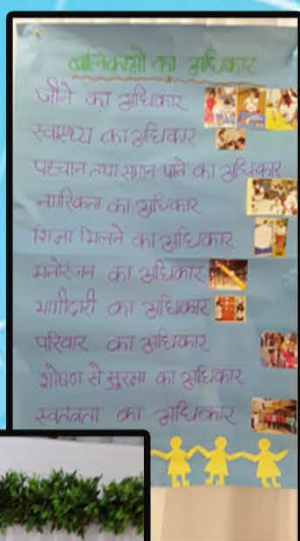 बालिकाओं का अधिकार
जीने का अधिकार
स्वास्थ्य का अधिकार
पहचान तथा सम्मान पाने का अधिकार
नागरिकता का अधिकार
शिक्षा मिलने का अधिकार
मनोरंजन का अधिकार
भागीदारी का अधिकार
परिवार का अधिकार
शोषण से सुरक्षा का अधिकार
स्वतंत्रता का अधिकार